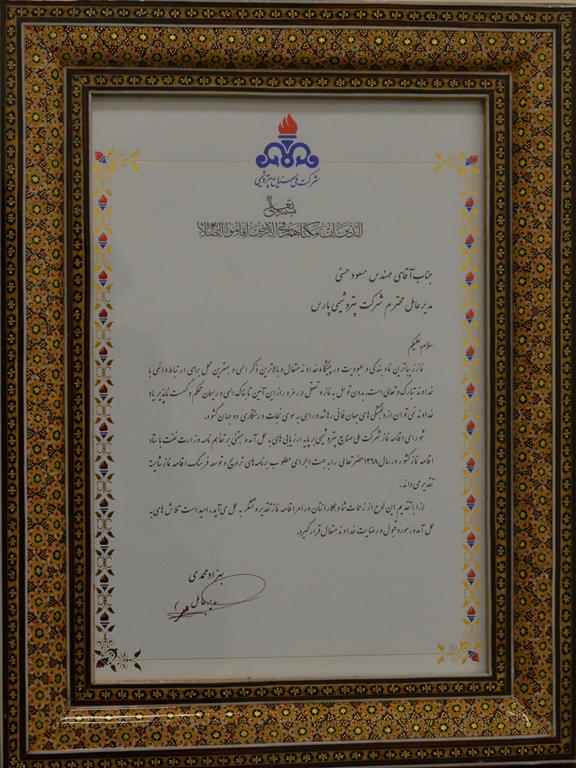 شرکت ملی صنایع پتروشیمی
بسمه تعالی
الذین ان مکناهم فی الارض اقاموا الصلاة
جناب آقای مهندس مسعود حسنی
مدیرعامل محترم شرکت پتروشیمی پارس
سلام علیکم
نماز زیباترین نماد بندگی و عبودیت در پیشگاه خداوند متعال و بالاترین ذکر الهی و بهترین محل برای ارتباط دائمی با
خداوند تبارک و تعالی است. بدون توسل به نماز و تعقل در رمز و راز این آئین تابناک الهی و ریسمان محکم و گسست ناپذیر یاد
خداوند نمی توان از دلبستگی های جهان فانی رها شد و راهی به سوی نجات و رستگاری دو جهان گشود.
شورای اقامه نماز شرکت ملی صنایع پتروشیمی بر پایه ارزیابی های به عمل آمده و مبتنی بر تفاهم نامه وزارت نفت با ستاد
اقامه نماز کشور در سال ۱۳۹۸ حضرتعالی را به جهت اجرای مطلوب برنامه های ترویج و توسعه فرهنگ اقامه نماز شایسته
تقدیر می داند.
لذا با تقدیم این لوح از زحمات شما و همکارانتان در امر اقامه نماز تقدیر و تشکر به عمل می آید. امید است تلاش های به
عمل آمده، مورد قبول و رضایت خداوند متعال قرار گیرد.
بهزاد محمدی
مدیرعامل